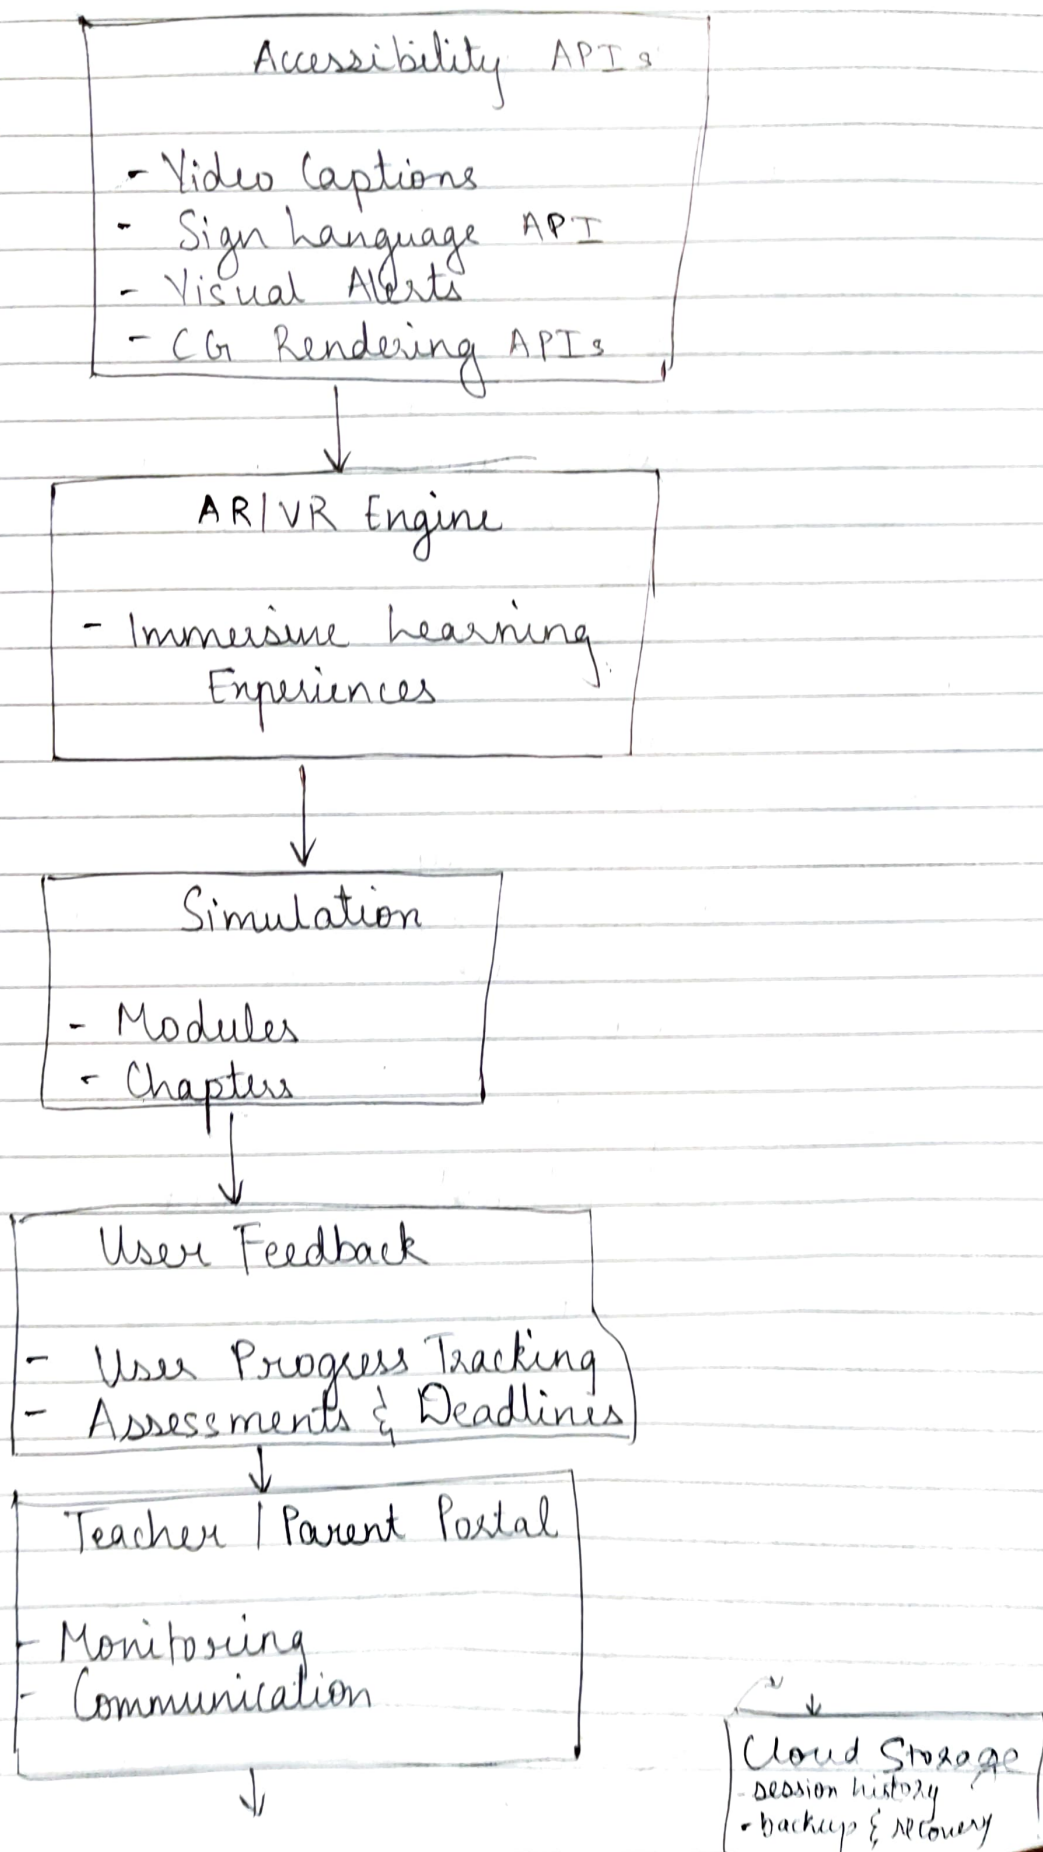 Accessibility APIs
- Video Captions
- Sign Language API
- Visual Alerts
- CG Rendering APIs
AR/VR Engine
- Immersive Learning
Experiences
Simulation
- Modules
- Chapters
User Feedback
- User Progress Tracking
- Assessments & Deadlines
Teacher / Parent Portal
- Monitoring
- Communication
Cloud Storage
- session history
- backup & recovery